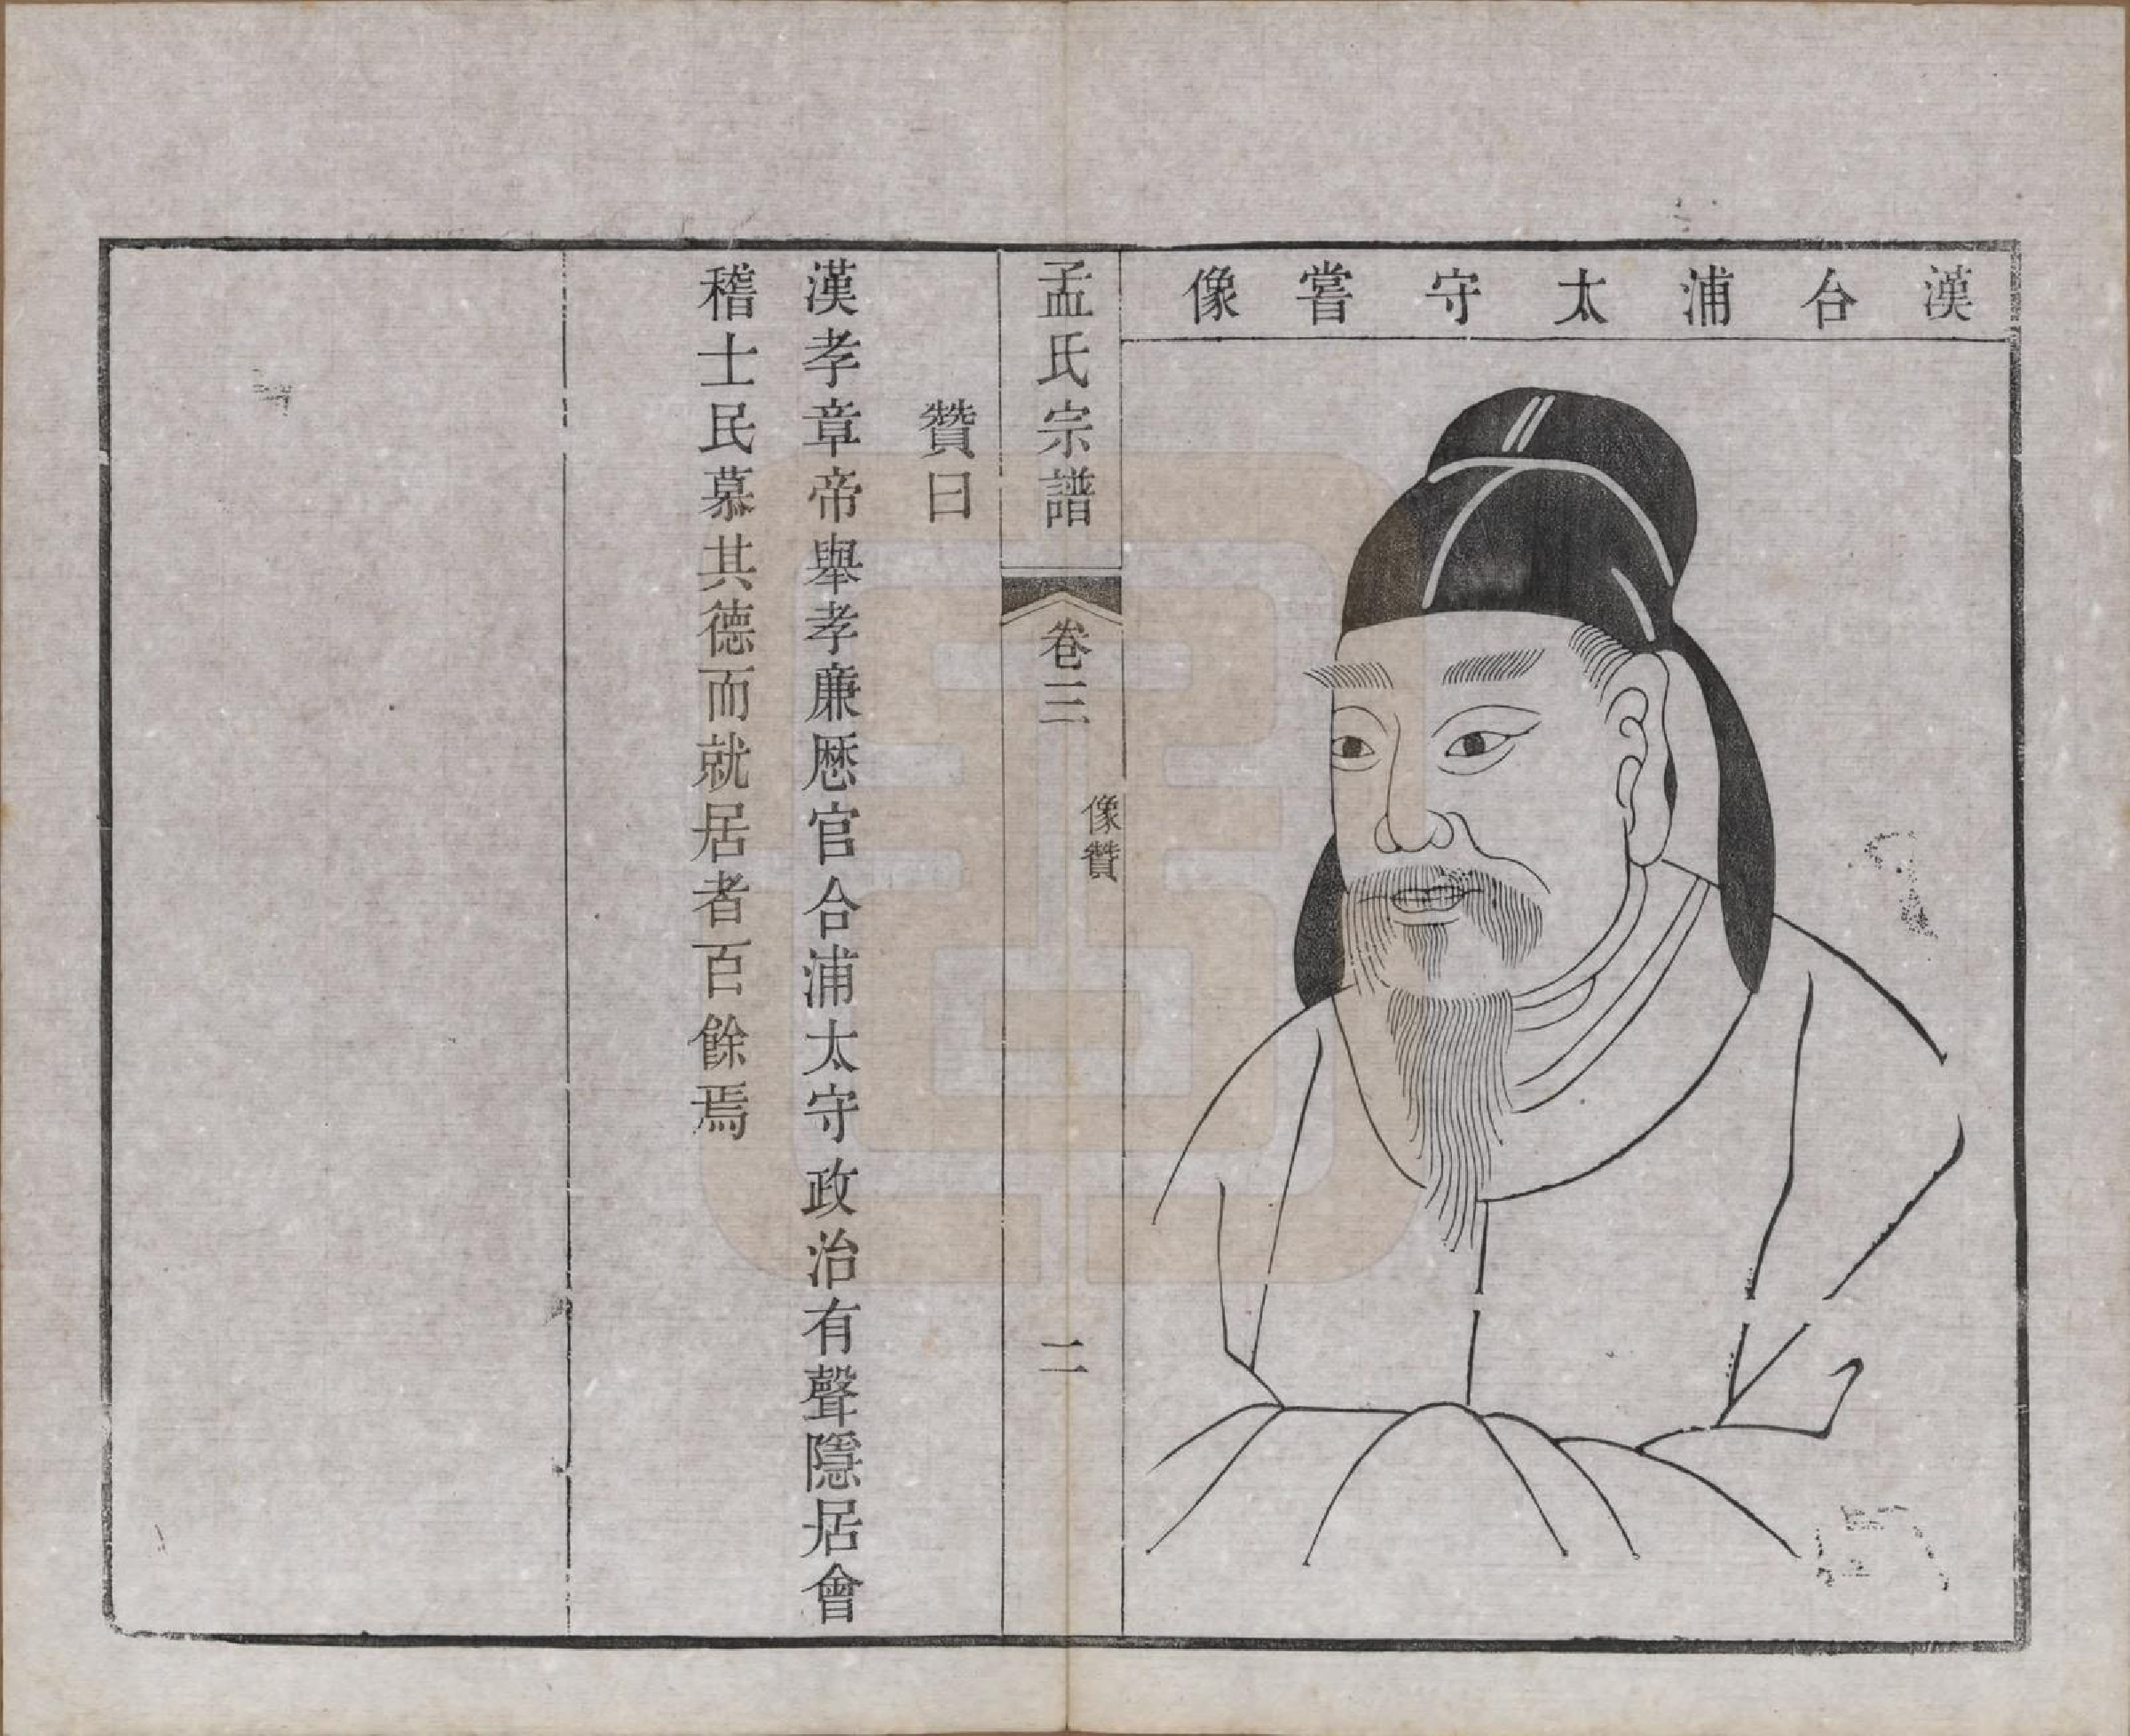 漢合浦太守嘗像
孟氏宗譜
卷三
像贊
二
贊曰
漢孝章帝舉孝廉歷官合浦太守政治有聲隱居會
稽士民慕其德而就居者百餘焉